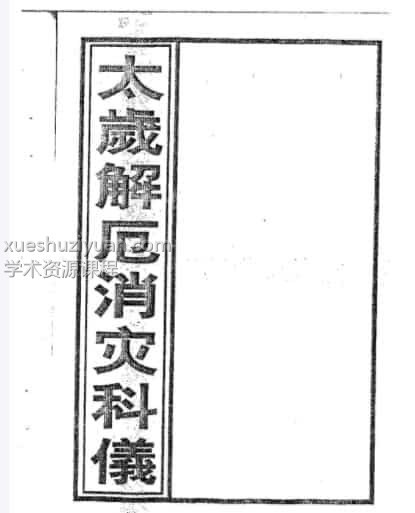 太歲解厄消灾科儀
xueshuziyuan.com
学术资源课程